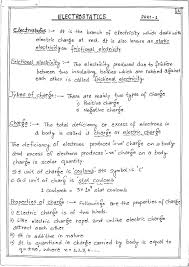 ELECTROSTATICS
PART-1
Electrostatics :- It is the branch of electricity which deals with
electric charge at rest. It is also known as static
electricity or frictional electricity
Frictional electricity :- The electricity produced due to friction
between two insulating bodies which are rubbed against
each other is called frictional electricity.
Types of charge :- There are mainly two types of charge
i) Positive charge
ii) Negative charge
Charge :- The total deficiency or excess of electrons
in a body is called charge
The deficiency of electrons produces +ve charge on a body
and excess of electrons produces -ve charge on a body
charge is scalar quantity.
S I unit of charge is coulomb
C.G.S unit of charge is stat coulomb
1 coulomb = 3× stat coulomb
Properties of charge :- Following are the properties of charge
i) Electric charge is of two kinds.
ii) Like electric charge repel and unlike electric charge
attract each other
iii) It is additive in nature
iv) It is quantized ie charge carried by body is equal to